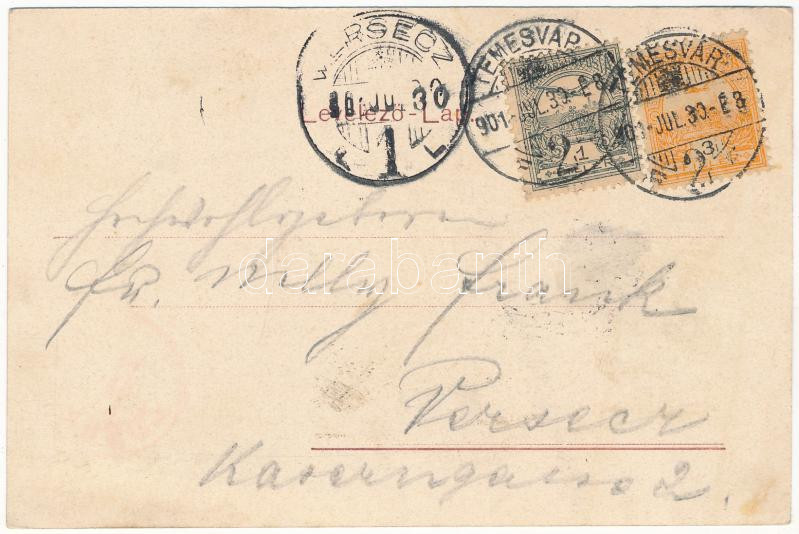 VERSECZ
JUL 30
1
TEMESVÁR
901 JUL. 30.-E 8
TEMESVÁR
901 JUL. 30.-E 8
Levelező-Lap
Hochwohlgeboren
darabanth
Fr. Willy Frank
Versecz
Kaserngasse 2.